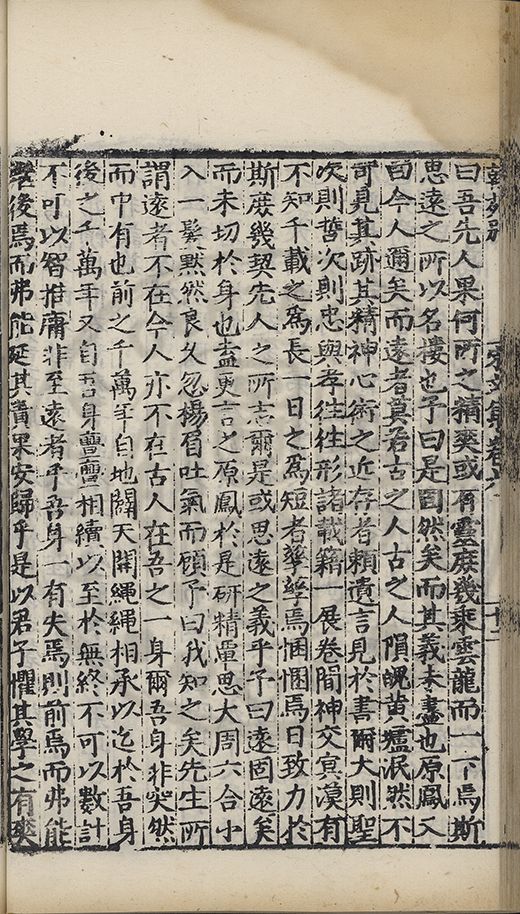 曰吾先人果何所之精爽或有靈庶幾乘雲龍而一下焉斯
思遠之所以名樓也予曰是固然矣而其義未盡也原鳳又
曰今人邇矣而遠者莫若古之人古之人隕魄黄壚泯然不
可見其跡其精神心術之近存者賴遺言見於書爾大則聖
次則哲次則忠與孝往往形諸載籍一展卷間神交冥漠有
不知千載之爲長一日之爲短者孳孳焉悃悃焉日致力於
斯庶幾契先人之所志爾是或思遠之義乎予曰遠固遠矣
而未切於身也盍更言之原鳳於是研精覃思大周六合小
入一髮黙然良久忽楊眉吐氣而顧予曰我知之矣先生所
謂遠者不在今人亦不在古人在吾之一身爾吾身非突然
而中有也前之千萬年自地闢天開繩繩相承以迄於吾身
後之千萬年又自吾身亹亹相續以至於無終不可以數計
不可以智推庸非至遠者乎吾身一有失焉則前焉而弗能
後焉而弗能延其責果安歸乎是以君子懼其學之有爽